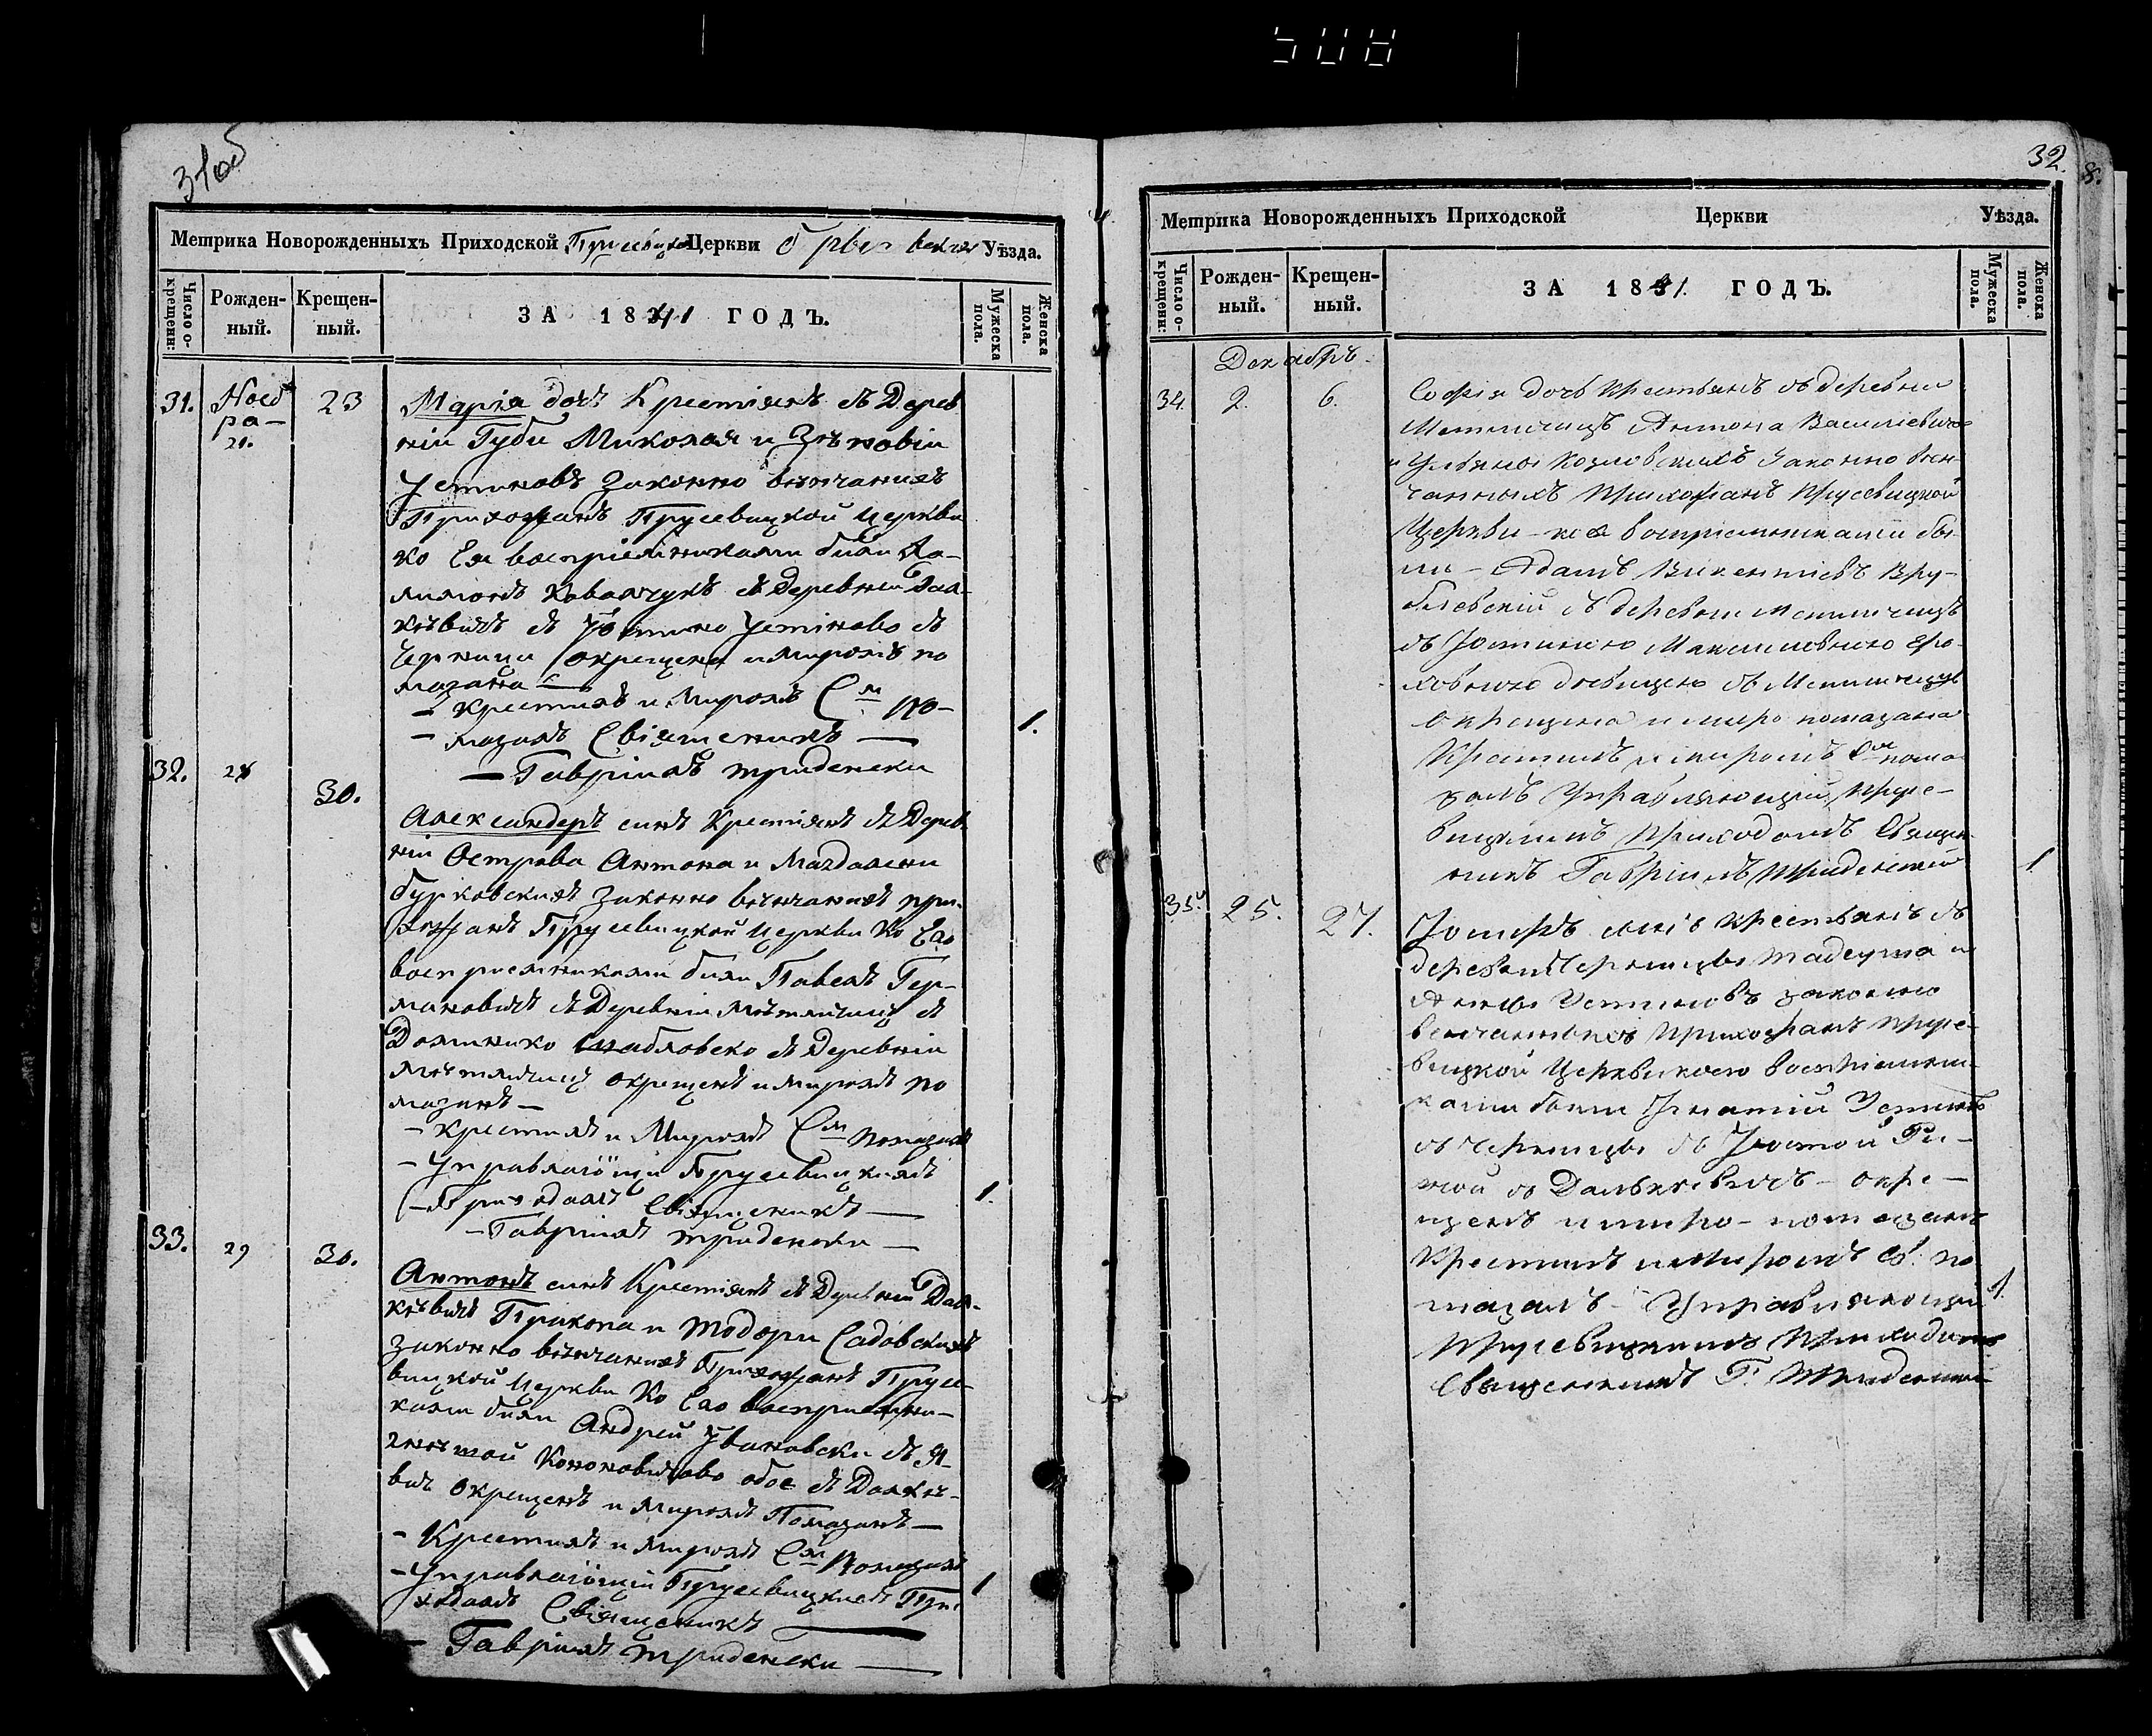 31об
Метрика Новорожденныхъ Приходской Прусевицкой Церкви Уѣзда.
Число о-крещенн:
Рожден-ный.
Крещен-ный.
ЗА 1841 ГОДЪ.
Мужеска пола.
Женска пола.
31. Ноеб ра— 21. 23
Марія дочъ Крестіянъ съ Дерев
ніи Губи Миколая и Зѣновіи
Устиновъ Законно вѣнчаныхъ
Прихожанъ Прусевицкой Церкви
ко Ея воспріемниками били
Ковалчукъ съ Деревни Дал-
кѣвичъ съ Устиново съ
Черници окрещена и Миромъ по
мазана—
— Крестилъ и Миромъ См по-
— мазалъ Свіященикъ — 1.
— Гавріилъ Триденски
32. 28 30.
Александеръ синъ Крестіянъ съ Дерев
ніи Острова Антона и Магдалени
Бурковскихъ Законно вѣнчаныхъ при-
хожанъ Прусевицкой Церкви Ко Ево
воспріемниками били Павелъ Гер-
мановичъ съ Деревніи Мѣтличиц съ
Доминико съ Деревніи
Мѣтличиц окрещенъ и Миромъ по
мазанъ—
— Крестилъ и Миромъ См помазалъ
— Управлающи Прусевицкимъ
— Приходомъ Свіященикъ — 1.
— Гавріилъ Триденски —
33. 29 30.
Антонъ синъ Крестіянъ съ Деревніи Дал-
кѣвичъ Прикопа и Тодори Садовскихъ
Законно вѣнчаныхъ Прихожанъ Прусе-
вицкой Церкви Ко Ево воспріемни-
ками били Андрей Ивановски съ Я-
гнѣшой Кононовичово обое съ Далкѣ-
вич окрещенъ и Миромъ Помазанъ—
— Крестилъ и Миромъ См Помазалъ
— Управлающій Прусевицкимъ При- 1
ходомъ Свіященикъ —
— Гавріилъ Триденски —
32.
Метрика Новорожденныхъ Приходской Церкви Уѣзда.
Число о-крещенн:
Рожден-ный.
Крещен-ный.
ЗА 1841. ГОДЪ.
Мужеска пола.
Женска пола.
Декабръ.
34. 2. 6.
Софія дочь Крестьянъ съ деревни
Метличицъ Антона Василіевича
и Ульяны Козловскихъ Законно вен-
чанныхъ Прихожанъ Прусевицкой
Церкви— коя воспріемниками бы-
ли— Адамъ Викентіевъ Вру-
блевскій съ деревни Метличицъ
съ Юстиною Максимовною
девицею съ Метличицъ
Окрещена и миро помазана
Крестилъ и миромъ См пома-
залъ Управляющій Прусе-
вицкимъ Приходомъ Священ-
никъ Гавріилъ Триденскій 1
35. 25. 27.
Іосифъ синъ Крестьянъ съ
деревни Черницы Тадеуша и
Анны Устиновъ законно
венчанныхъ Прихожанъ Прусе-
вицкой Церкви коего воспріемни-
ками были Игнатій Устинъ
съ Черницы съ
съ Далькевичъ— окре—
щенъ и миро— помазанъ
Крестилъ и Миромъ С. по
мазалъ— Управляющій 1.
Прусевицкимъ Приходомъ
Священникъ Г. Триденски